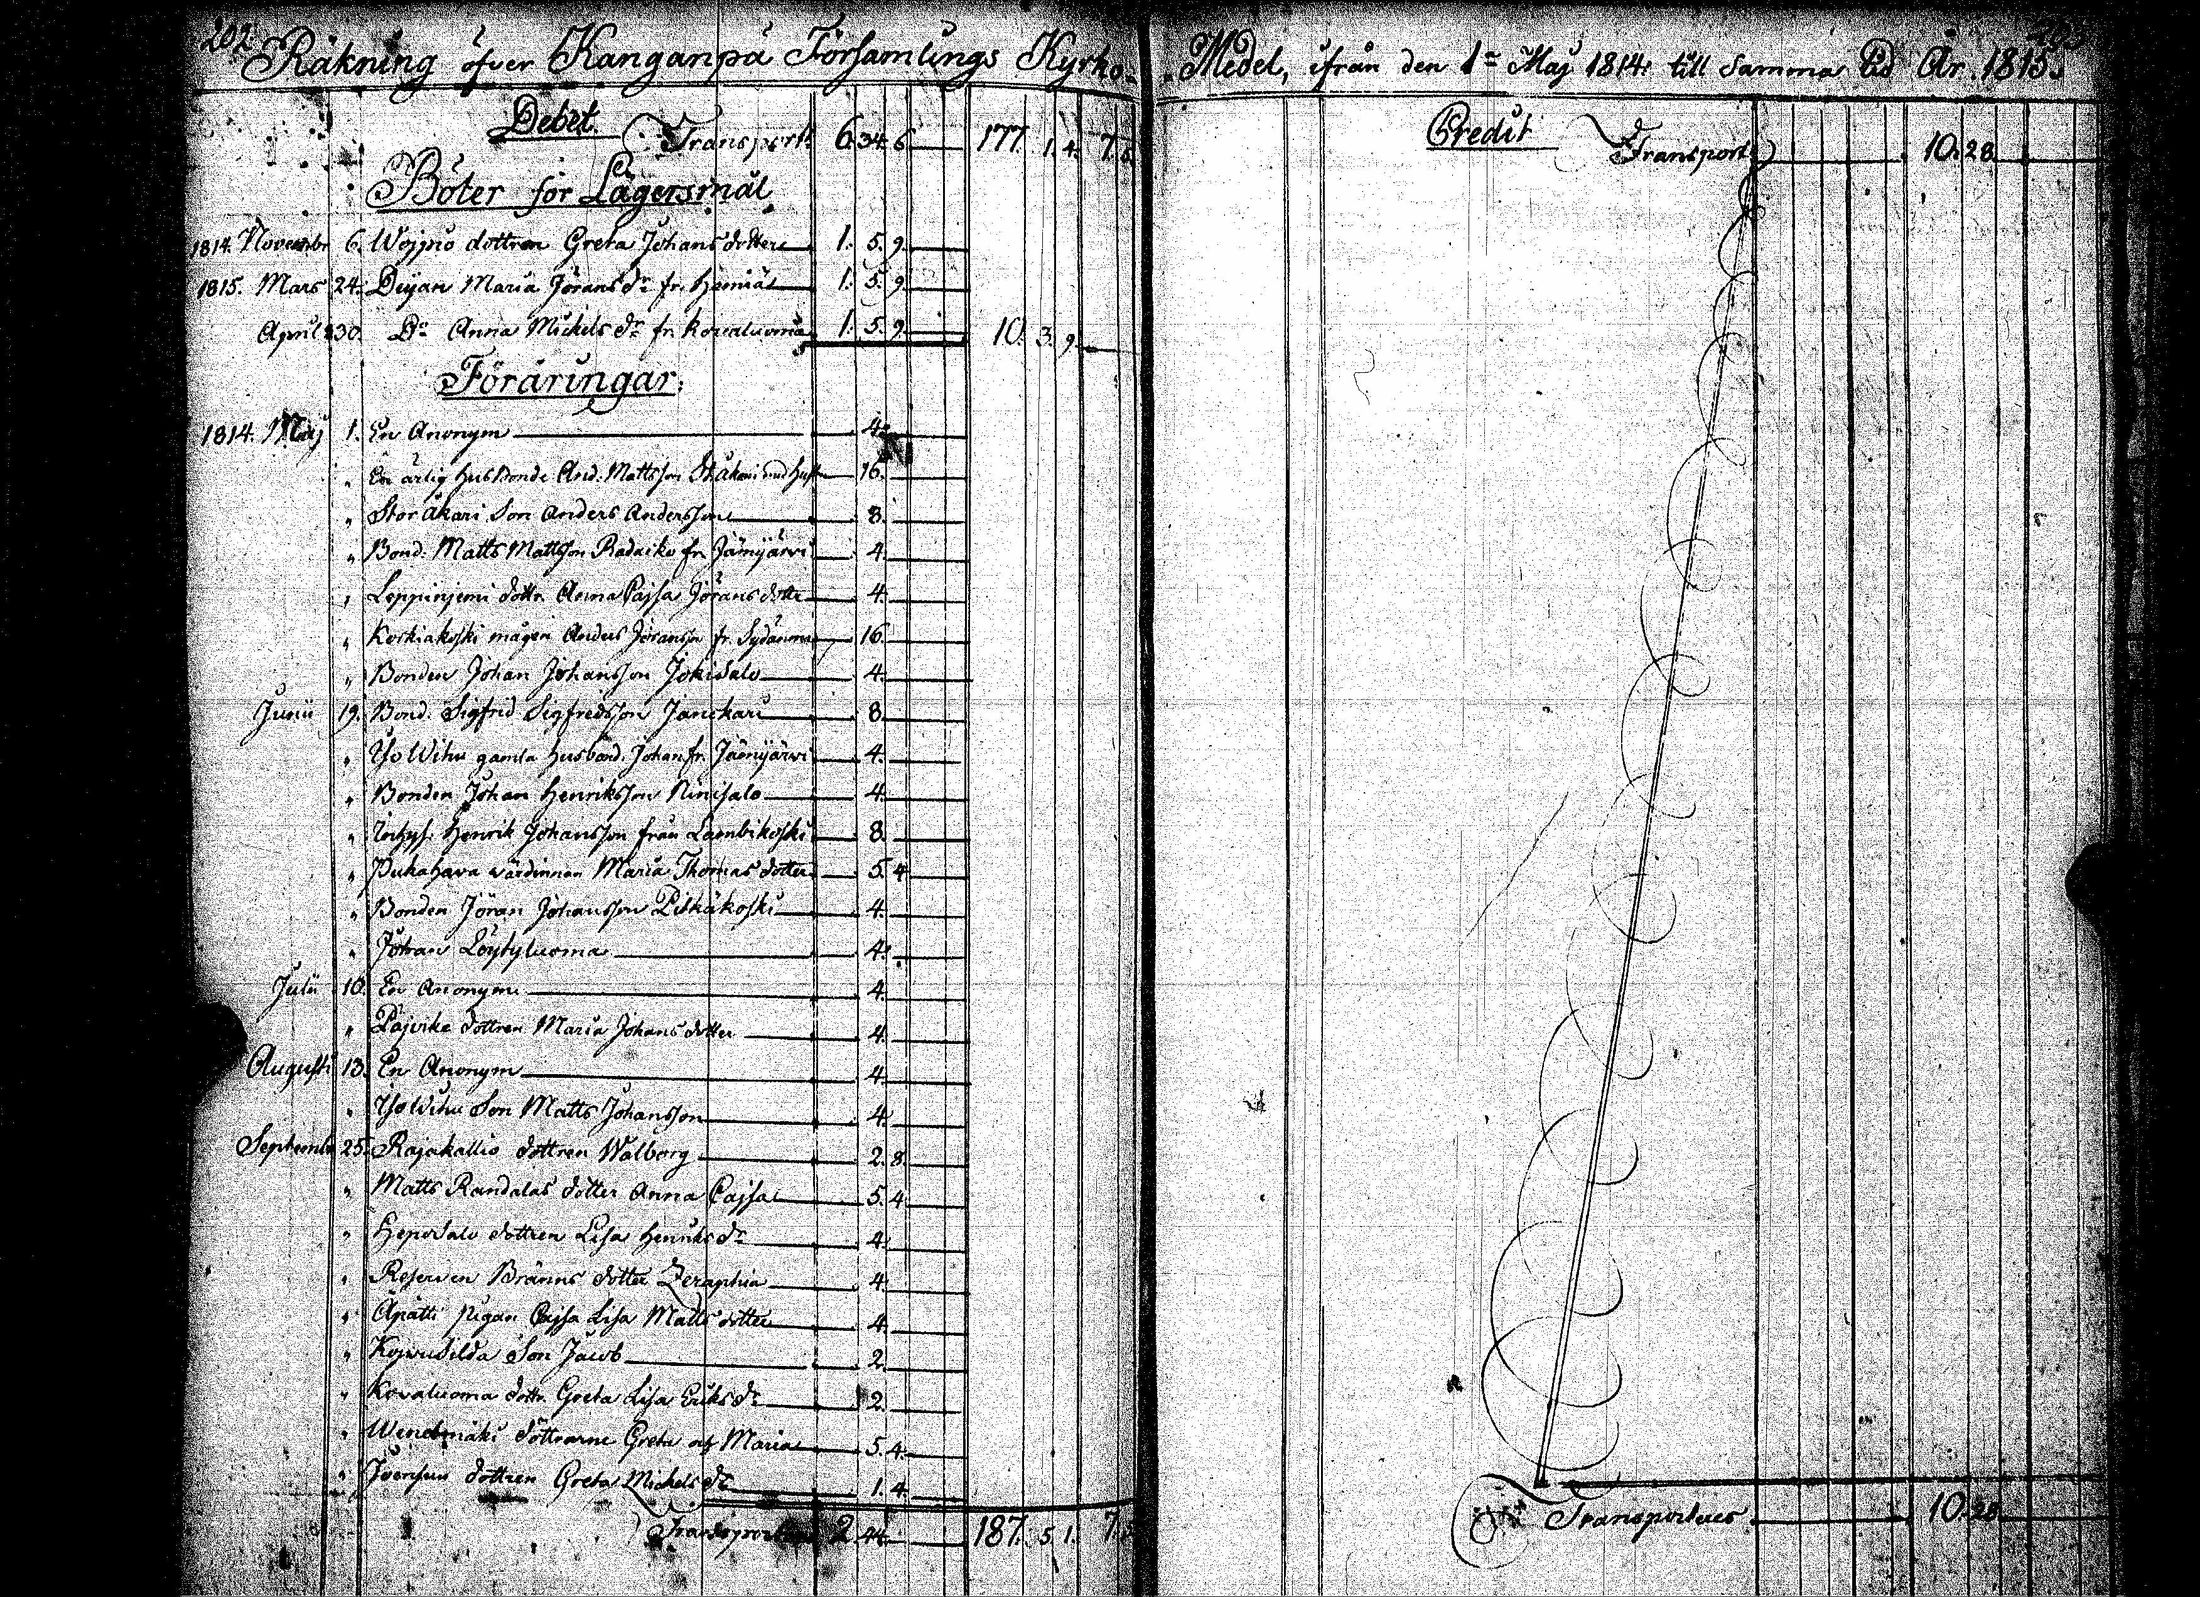 202
Räkning öfver Kanganpä Församlings Kyrko-
Debet
Transport 6. 34. 6 177. 1. 4. 7.
Böter för Lägersmål
1814. Novembr 6. Wojpio dottren Greta Johansdotter 1. 5. 9.
1815. Mars 24. Deijan Maria Jöransdr fr. 1. 5. 9.
April 30. Do Anna Michelsdr fr. Kovaluoma 1. 5. 9. 10. 3. 9.
Föräringar.
1814. Maj 1. En Anonym 4.
" En ärlig HusBonde And. Mattsson Ståkari med Hustru 16.
" Storåkari Son Anders Andersson 8.
" Bond. Matts Mattsson Radaiko fr. Jämijärvi 4.
" Leppinjemi dottr. Anna Cajsa Jöransdotter 4.
" Korkiakoski mågen Anders Jöransson fr. 16.
" Bonden Johan Johansson Jokisalo 4.
Junii 19. Bond. Sigfrid Sigfredsson Janckari 8.
" Iso Wihu gamla Husbond. Johan fr. Jämijärvi 4.
" Bonden Johan Henriksson Niinisalo 4.
" Inhys. Henrik Johansson från Lambikoski 8.
" Pukahava wärdinnan Maria Thomasdotter 5. 4
" Bonden Jöran Johansson Pitkäkoski 4.
" Johan Löytyluoma 4.
Julii 10. En Anonym 4.
" Päjvike dottren Maria Johansdotter 4.
Augusti 13. En Anonym 4.
" Iso Wihu Son Matts Johansson 4.
Septembr 25. Rajakallio dottren Walborg 2. 8.
" Matts Randalas dotter Anna Cajsa 5. 4
" Heposalo dottren Lisa Henriksdr 4.
" Reserven Bränns dotter Zeraphia 4.
" Äpätti pigan Cajsa Lisa Mattsdotter 4.
" Kojvusilda Son Jacob 2.
" Kovaluoma dottr. Greta Lisa Eriksdr 2.
" döttrarne Greta och Maria 5. 4.
" dottren Greta Michelsdr 1. 4.
Transport 2. 44. 187. 5. 1. 7.
Medel, ifrån den 1ne Maj 1814. till samma tid År. 1815.
Credit
Transport 10. 28.
Transporteras 10. 28.